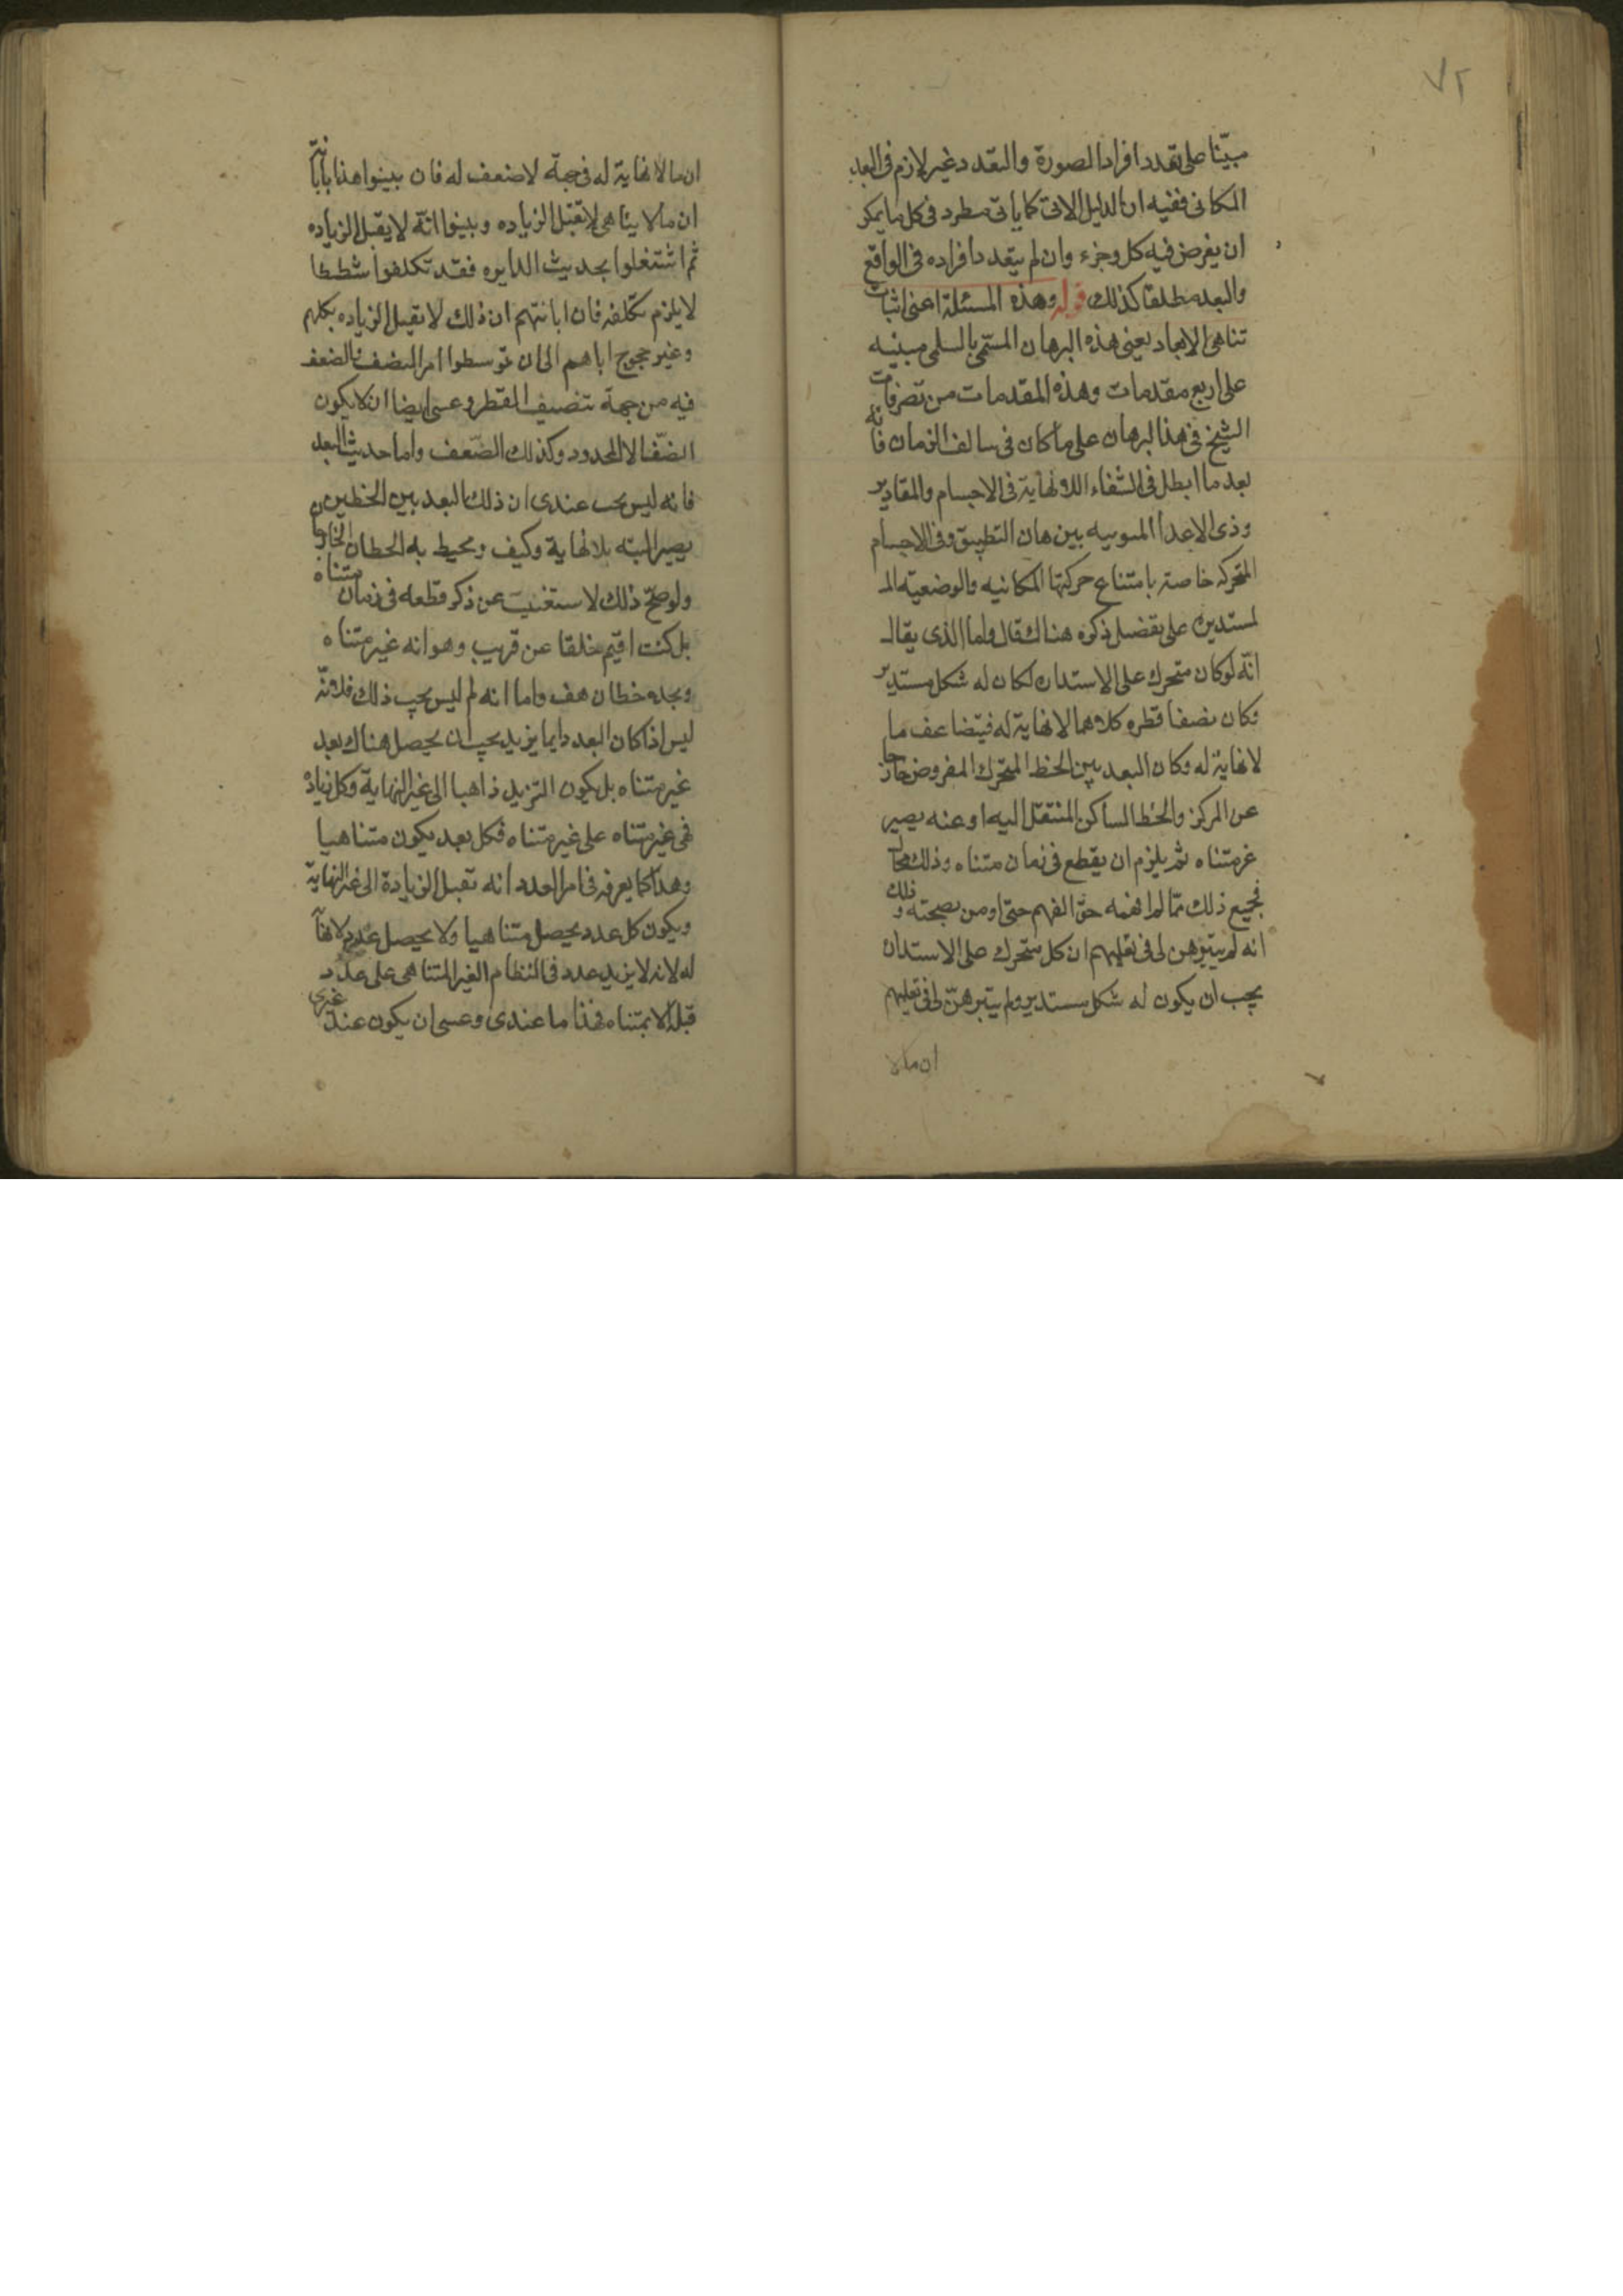 ٧٢
مبيّنا على تعدد افراد الصورة والتعدد غير لازم فى البعد
المكانى ففيه ان الدليل الاتى كما ياتى مطرد فى كل ما يمكن
ان يفرض فيه كل وجزء وان لم يتعدد افراده فى الواقع
والبعد مطلقا كذلك قوله وهذه المسئلة اعنى اثبات
تناهى الابعاد يعنى هذه البرهان المسمّى بالسلمى مبنيه
على اربع مقدمات وهذه المقدمات من تصرفات
الشيخ فى هذا لبرهان على ما كان فى سالف الزمان فانه
بعد ما ابطل فى الشفاء اللانهاية فى الاجسام والمقادير
وذى الاعدا المترتبيه ببرهان التطبيق وفى الاجسام
المتحركه خاصة بامتناع حركتها المكانيه والوضعيه المـ
لمستديره على تفضيل ذكره هناك قال واما الذى يقال
انّه لو كان متحرك على الاستداره لكان له شكل مستدير
وكان نصفا قطره كلاهما لا نهاية له فيتضاعف ما
لا نهاية له وكان البعد بين الخط المتحرك المفروض خارجا
عن المركز والخط الساكن المنتقل اليه او عنه يصير
غر متناه ثم يلزم ان يقطع فى زمان متناه وذلك محال
فجميع ذلك ممّا لم افهمه حقّ الفهم حتى اومن بصحته وذلك
انه لم يتبرهن لى فى تعليمهم ان كل متحرك على الاستداره
يجب ان يكون له شكل مستدير ولم يتبرهنّ لى فى تعليمهم
ان مالا
ان مالا نهاية له فى جهة لا ضعف له فان بينوا هذا بابانته
ان ما لا يتناهى لا تقبل الزياده وبينوا انّه لا يقبل الزياده
ثم اشتغلوا بحديث الدايره فقد تكلفوا شططا
لا يلزم تكلفه فان ابانتهم ان ذلك لا تقبل الزياده بكلهم
وغير محوج اياهم الى ان توسطوا امر النصف والضعف
فيه من جهة تنصيف القطر وعسى ايضا ان لا يكون
النصف الا لمحدود وكذلك الضّعف واما حديث البعد
فانه ليس يجب عندى ان ذلك البعد بين الخطين
يصير البته بلا نهاية وكيف ومحيط به الخطان الخارجان
ولو صحّ ذلك لاستغنيت عن ذكر قطعه فى زمان متناه
بل كنت اقيم خلفا عن قريب وهو انه غير متناه
ويحده خطان هف واما انه لم ليس يجب ذلك فلانّه
ليس اذا كان البعد دايما يزيد يجب ان يحصل هناك بعد
غير متناه بل يكون التزيد ذاهبا الى غير النهاية وكل زيادة
فهى غير متناه على غير متناه فكل بعد يكون متناهيا
وهذا كما يعرفه فى امر العدد انه تقبل الزيادة الى غير النهاية
ويكون كل عدد يحصل متناهيا ولا يحصل عدد لا نهاية
له لانه لا يزيد عدد فى النظام الغير المتناهى على عدد
قبله الا بمتناه فهذا ما عندى وعسى ان يكون عند غيرى